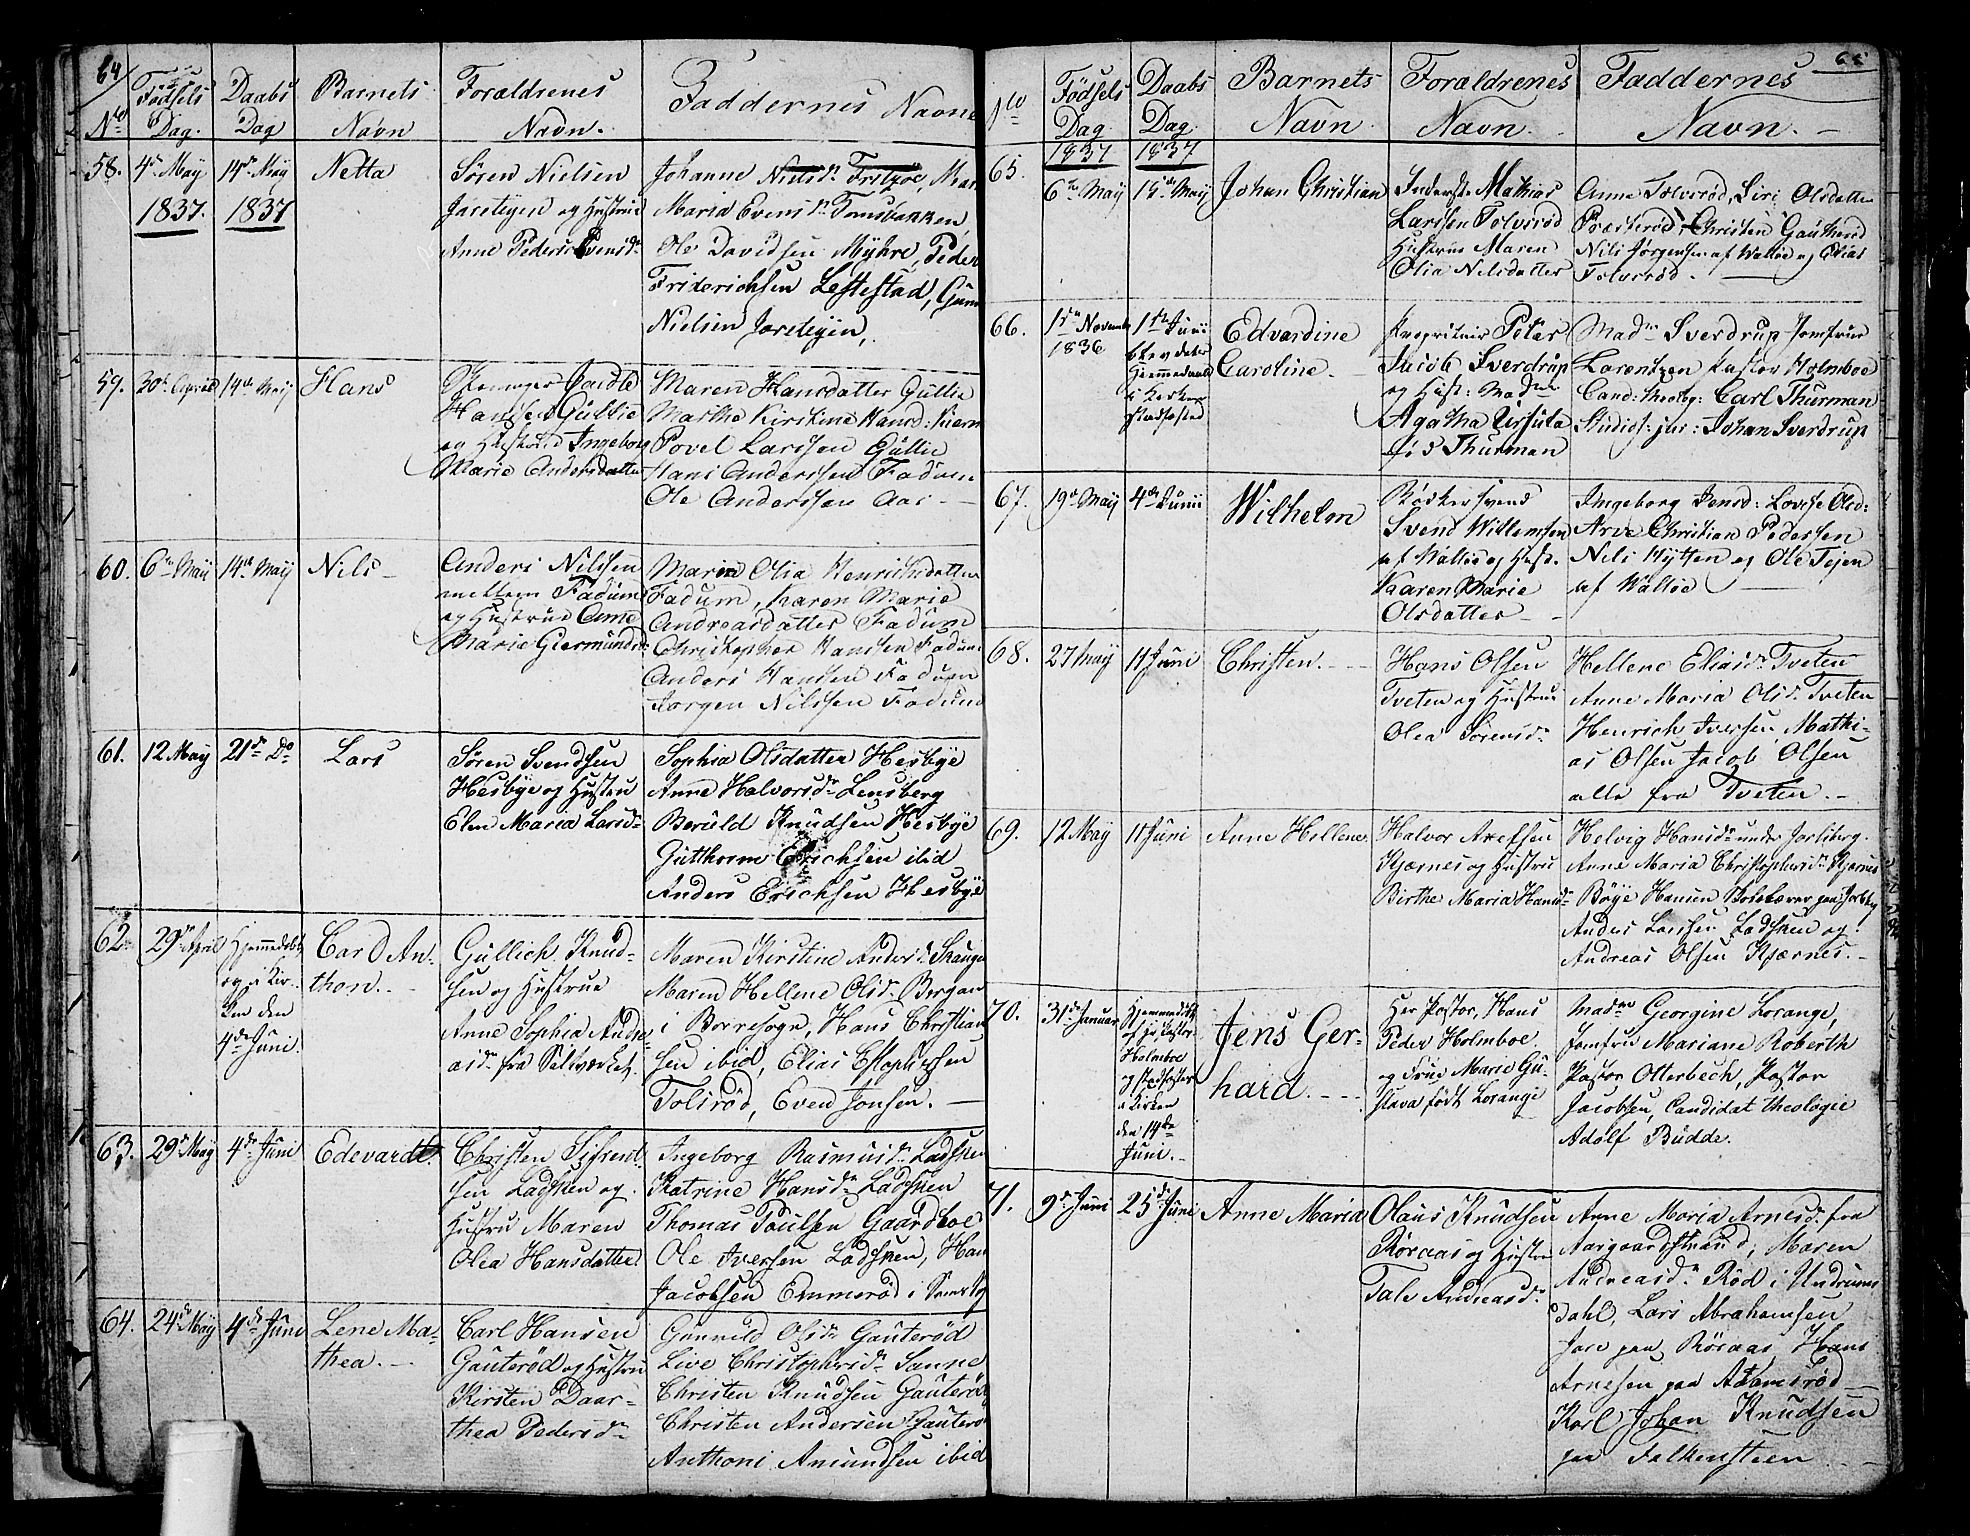 64
No
Fødsels Dag.
Daabs Dag
Barnets Navn
Foraldrenes Navn.
Faddernes Navne
58.
4de May
1837.
14de May
1837
Netta
Søren Nielsen
Jareteyen og Hustrue
Anne Peders Evensdr
Johanne Nielsdr
Maria Evensdr Tomsbakken,
Ole Davidsen Myhre, Peder
Friderichsen Lestestad, Gunn
Nielsen Jareteyen,
59.
30te April
14de May
Hans
Jacob
Hansen Gullie
og Hustrue Ingeborg
Marie Andersdatter
Maren Hansdatter Gullie
Marthe Kirstine Hansd:
Povel Larssen Gullie
Hans Anderssen Fadum
Ole Anderssen Aas
60.
6te May
14de May
Nils
Anders Nilssen
mellem Fadum
og Hustrue Anne
Marie Giermundsd
Maria Olia Henrichsdatter
Fadum, Karen Marie
Andreasdatter Fadum
Christopher Hansen Fadum
Anders Hansen Fadum
Jørgen Nilssen Fadum
61.
12 May
21de Do
Lars
Søren Svendsen
Hesbye og Hustru
Elen Maria Larsdr
Sophia Olsdatter Hesbye
Anne Halvorsdr Lensberg
Beruld Knudsen Hesbye
Gutthorm Erichsen ibid
Anders Erichsen Hesbye
62.
29de April
Hjemmedøbt
og i Kir-
ken den
4de Juni.
Carl An-
thon.
Gullich Knud-
sen og Hustrue
Anne Sophia Andre-
asdr fra Saltværket.
Maren Kirstine Andersdr Skauge
Maren Hellene Olsdr Bergan
i Borresogn, Hans Christian
sen ibid, Elias Estophersen
Tolsrød, Even Jonsen.
63.
29de May
4de Juni
Edevardt.
Christen Sifrent-
sen Ladsken og
Hustru Maren
Olea Hansdatter
Ingeborg Rasmusdr Ladsken
Katrine Hansdr Ladsken
Thomas Poulsen Gaardboe
Ole Iversen Ladsken, Han
Jacobsen Emmerød i
64.
24de May
4de Juni
Lene Ma-
thea.
Carl Hansen
Gauterød og Hustru
Kirsten Daar-
thea Pedersdr
Gunnild Olsdr Gauterød
Live Christophersdr Sanne
Christen Knudsen Gauterød
Christen Andersen Gauterød
Anthoni Amundsen ibid
No
Fødsels Dag
1837
Daabs Dag.
1837
Barnets Navn
Foraldrenes Navn.
Faddernes Navn.
65.
6te May
15de May
Johan Christian
Inderste Mathias
Larssen Tolvsrød
Hustrue Maren
Olia Nilsdatter
Anne Tolvsrød, Siri Olsdatter
Præsterød, Christen Gauterød
Nils Jørgensen af Walløe og Elias
Tolvsrød.
66.
1ste November
1836
1ste Juni
blev dets
Hjemmedaab
i Kirken
stadfæsted
Edvardine
Caroline
Proprietair Peter
Jacob Sverdrup
og Hust: Madme
Agatha Ursula
fød Thurman
Madme Sverdrup Jomfrue
Lorentzen Pastor Holmboe
Cand: theolog: Carl Thurman
Studios: jur: Johan Sverdrup
67.
19de May
4de Junii
Wilhelm
Bødkersvend
Svend Willemsen
af Walløe og Hust.
Karen Marie
Olsdatter
Ingeborg Jensd: Lovise Olsd:
Arve Christian Pedersen
Nils Hytten og Ole Tejen
af Walløe
68.
27 May
11 Juni
Christen.
Hans Olsen
Tveten og Hustrue
Olea Sørensdr
Hellene Eliasdr Tveten
Anne Maria Olsdr Tveten
Henrich Iversen, Mathi-
as Olsen Jacob Olsen
alle fra Tveten.
69.
12 May
11 Juni
Anne Hellene
Halvor Arefsen
Kjærnes og Hustru
Birthe Maria Hansdr
Helvig Hansdr under Jarlsberg.
Anne Maria Christophersdr Kjærnes
Bøye Hansen
Anders Larssen Ladsken og
Andreas Olsen Kjærnes.
70.
31de Januar
Hjemmedøbt
af Hr. Pastor
Holmboe
og stadfæstet
i Kirken
den 14de
Juni.
Jens Ger-
hard.
Her Pastor, Hans
Peder Holmboe
og Frue Marie Gu-
stava født Lorange
Madme Georgine Lorange,
Jomfru Mariane Roberth
Pastor Otterbech, Pastor
Jacobsen, Candidat theologie
Adolf Budde.
71.
9de Juni
25de Juni
Anne Maria
Olaus Knudsen
Røraas og Hustru
Tale Andreasdr
Anne Maria Arnesdr fra
Aargaardstrand, Maren
Andreasdr Rød i Undrums
dahl, Lars Abrahamsen
Jare paa Røraas Hans
Arnesen paa Adamsrød
Karl Johan Knudsen
paa Falkensteen